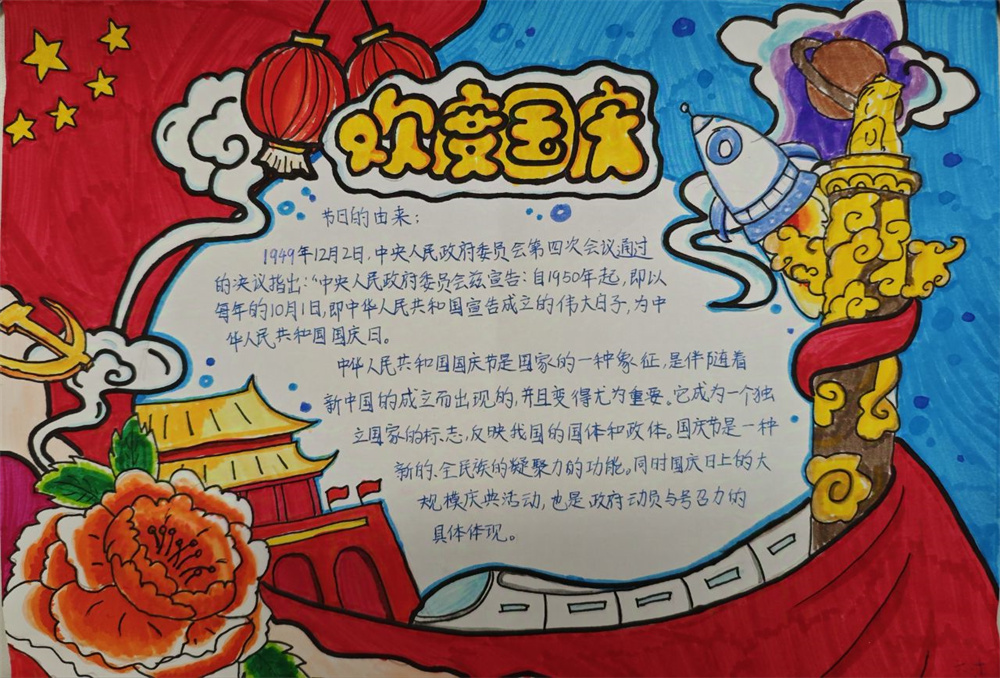 欢度国庆
节日的由来:
1949年12月2日,中央人民政府委员会第四次会议通过
的决议指出:“中央人民政府委员会兹宣告:自1950年起,即以
每年的10月1日,即中华人民共和国宣告成立的伟大日子,为中
华人民共和国国庆日。
中华人民共和国国庆节是国家的一种象征,是伴随着
新中国的成立而出现的,并且变得尤为重要。它成为一个独
立国家的标志,反映我国的国体和政体。国庆节是一种
新的、全民族的凝聚力的功能。同时国庆日上的大
规模庆典活动,也是政府动员与号召力的
具体体现。